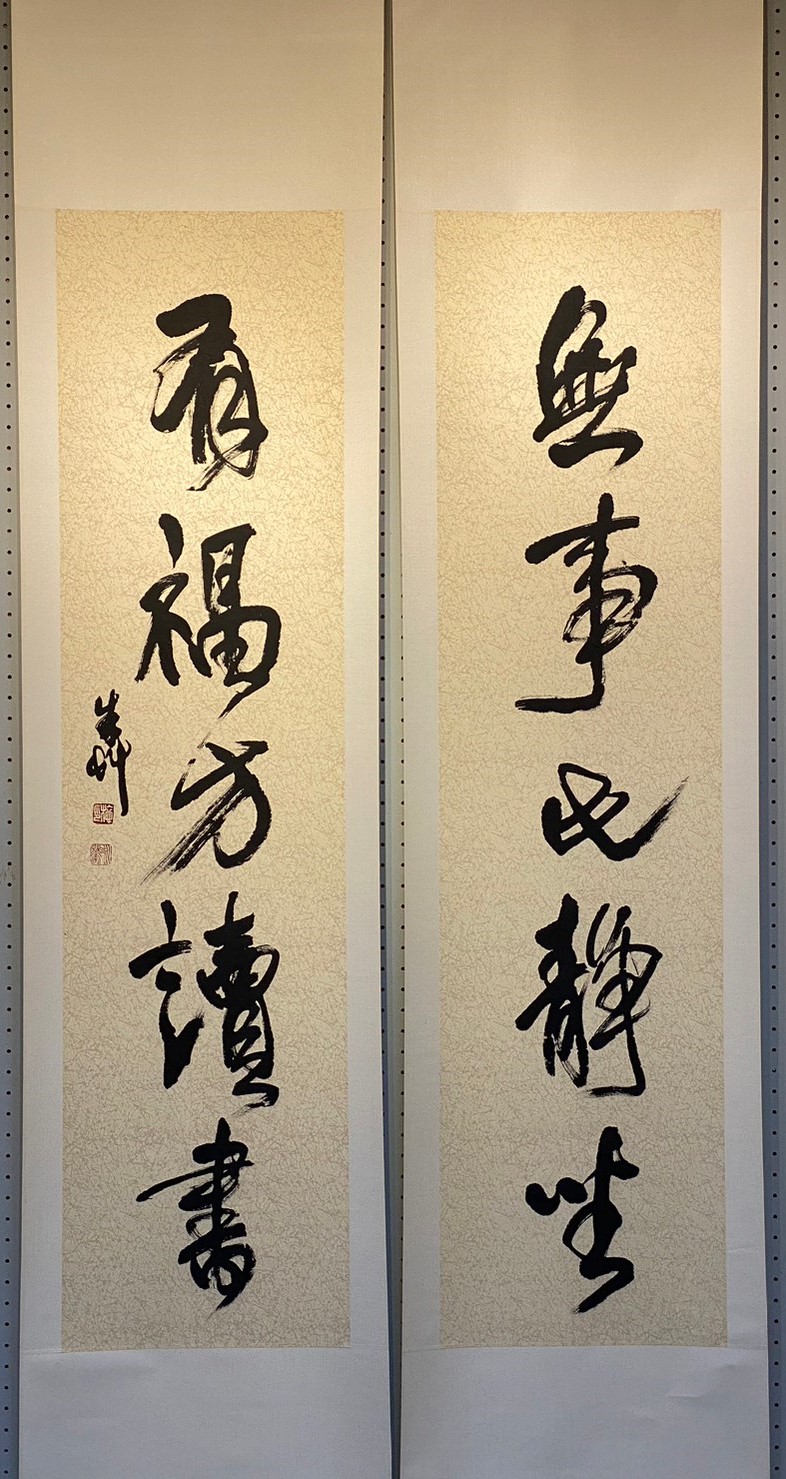 無事此靜坐
有福方讀書